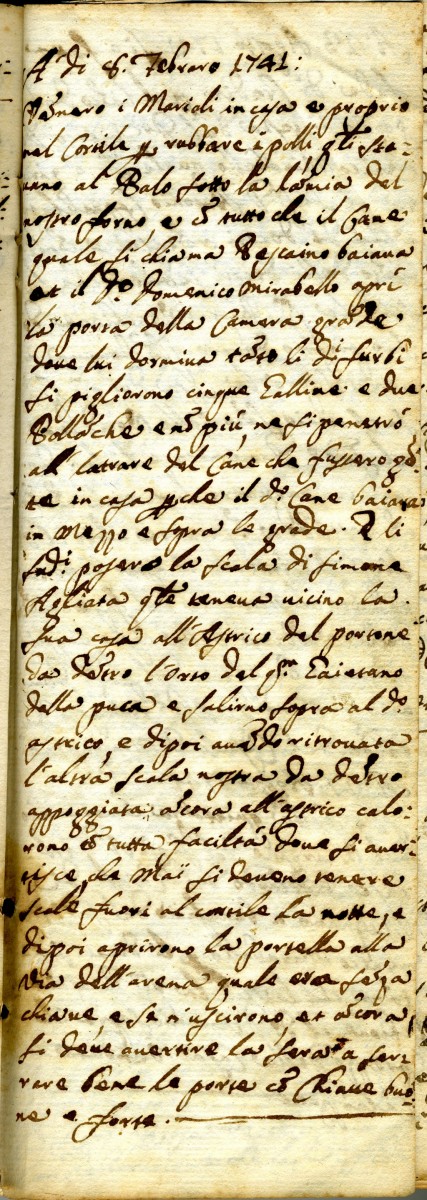 A di 8. Febraro 1741:
Vennero i Marioli in casa e proprio
nel Cortile p rubbare i polli qli sta-
unno al Balo sotto la lamia del
nostro forno, e cõ tutto che il Cane
quale si chiama Bescaino baiaua
et il Do Domenico Mirabello aprì
la porta della Camera grãde
doue lui dormiua tãto li di furbi
si pigliorono cinque Galline e due
Pollãche e nõ più, ne si penetrò
all latrare del Cane che fussero gẽ-
te in casa pche il do Cane baiaua
in mezzo e sopra le grade. E li
sudi posero la scala di Simone
Agliata qle teneua uicino la
sua casa all'Astrico del portone
da dẽtro l'orto del qm Gaietano
della puca e salirno sopra al do
astrico, e dipoi auẽdo ritrouata
l'altra scala nostra da dẽtro
appoggiata ãcora all'astrico calo:
rono cõ tutta facilità doue si auer-
tisce che Mai si deueno tenere
scale fuori al cortile la notte, e
dipoi aprirono la portella alla
via dell'arena quale era sẽza
chiaue, e se n'uscirono, et ãcora
si deue auertire la sera a ser:
rare bene le porte cõ Chiaue buo-
ne e forte.